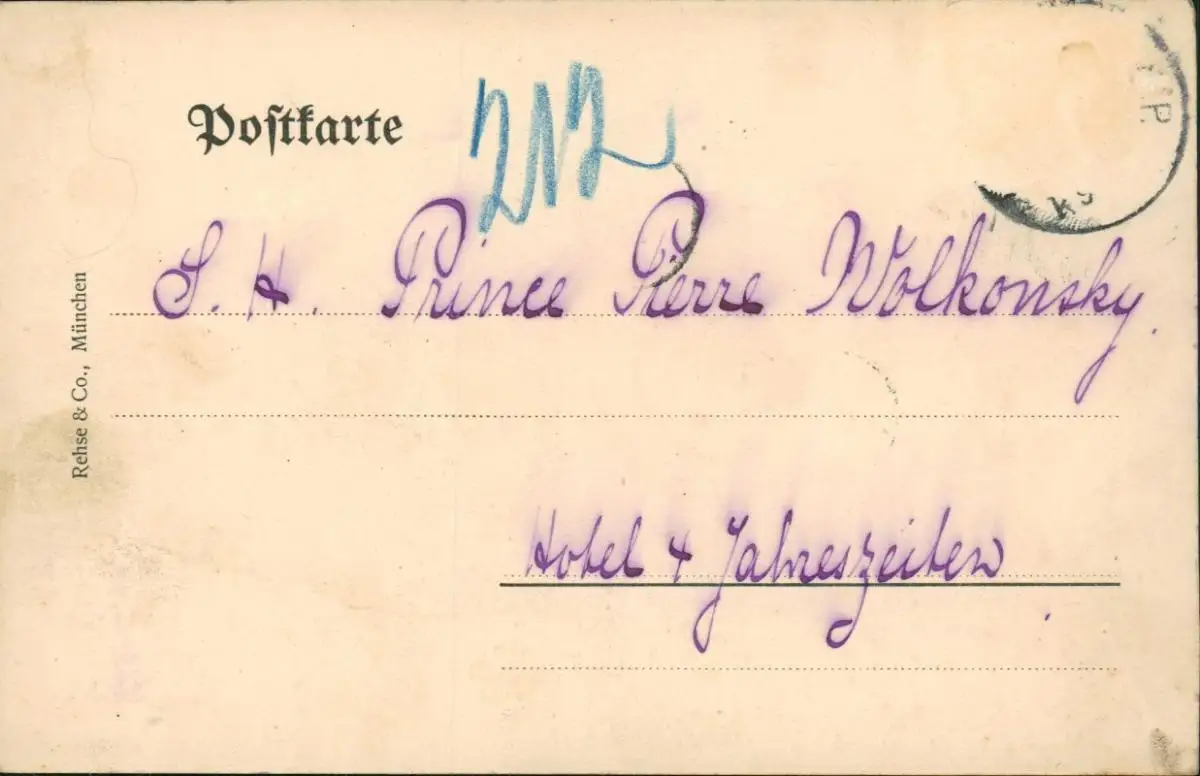 Postkarte
S. H. Prince Pierre Wolkonsky.
Hotel 4 Jahreszeiten
Rehse & Co., München